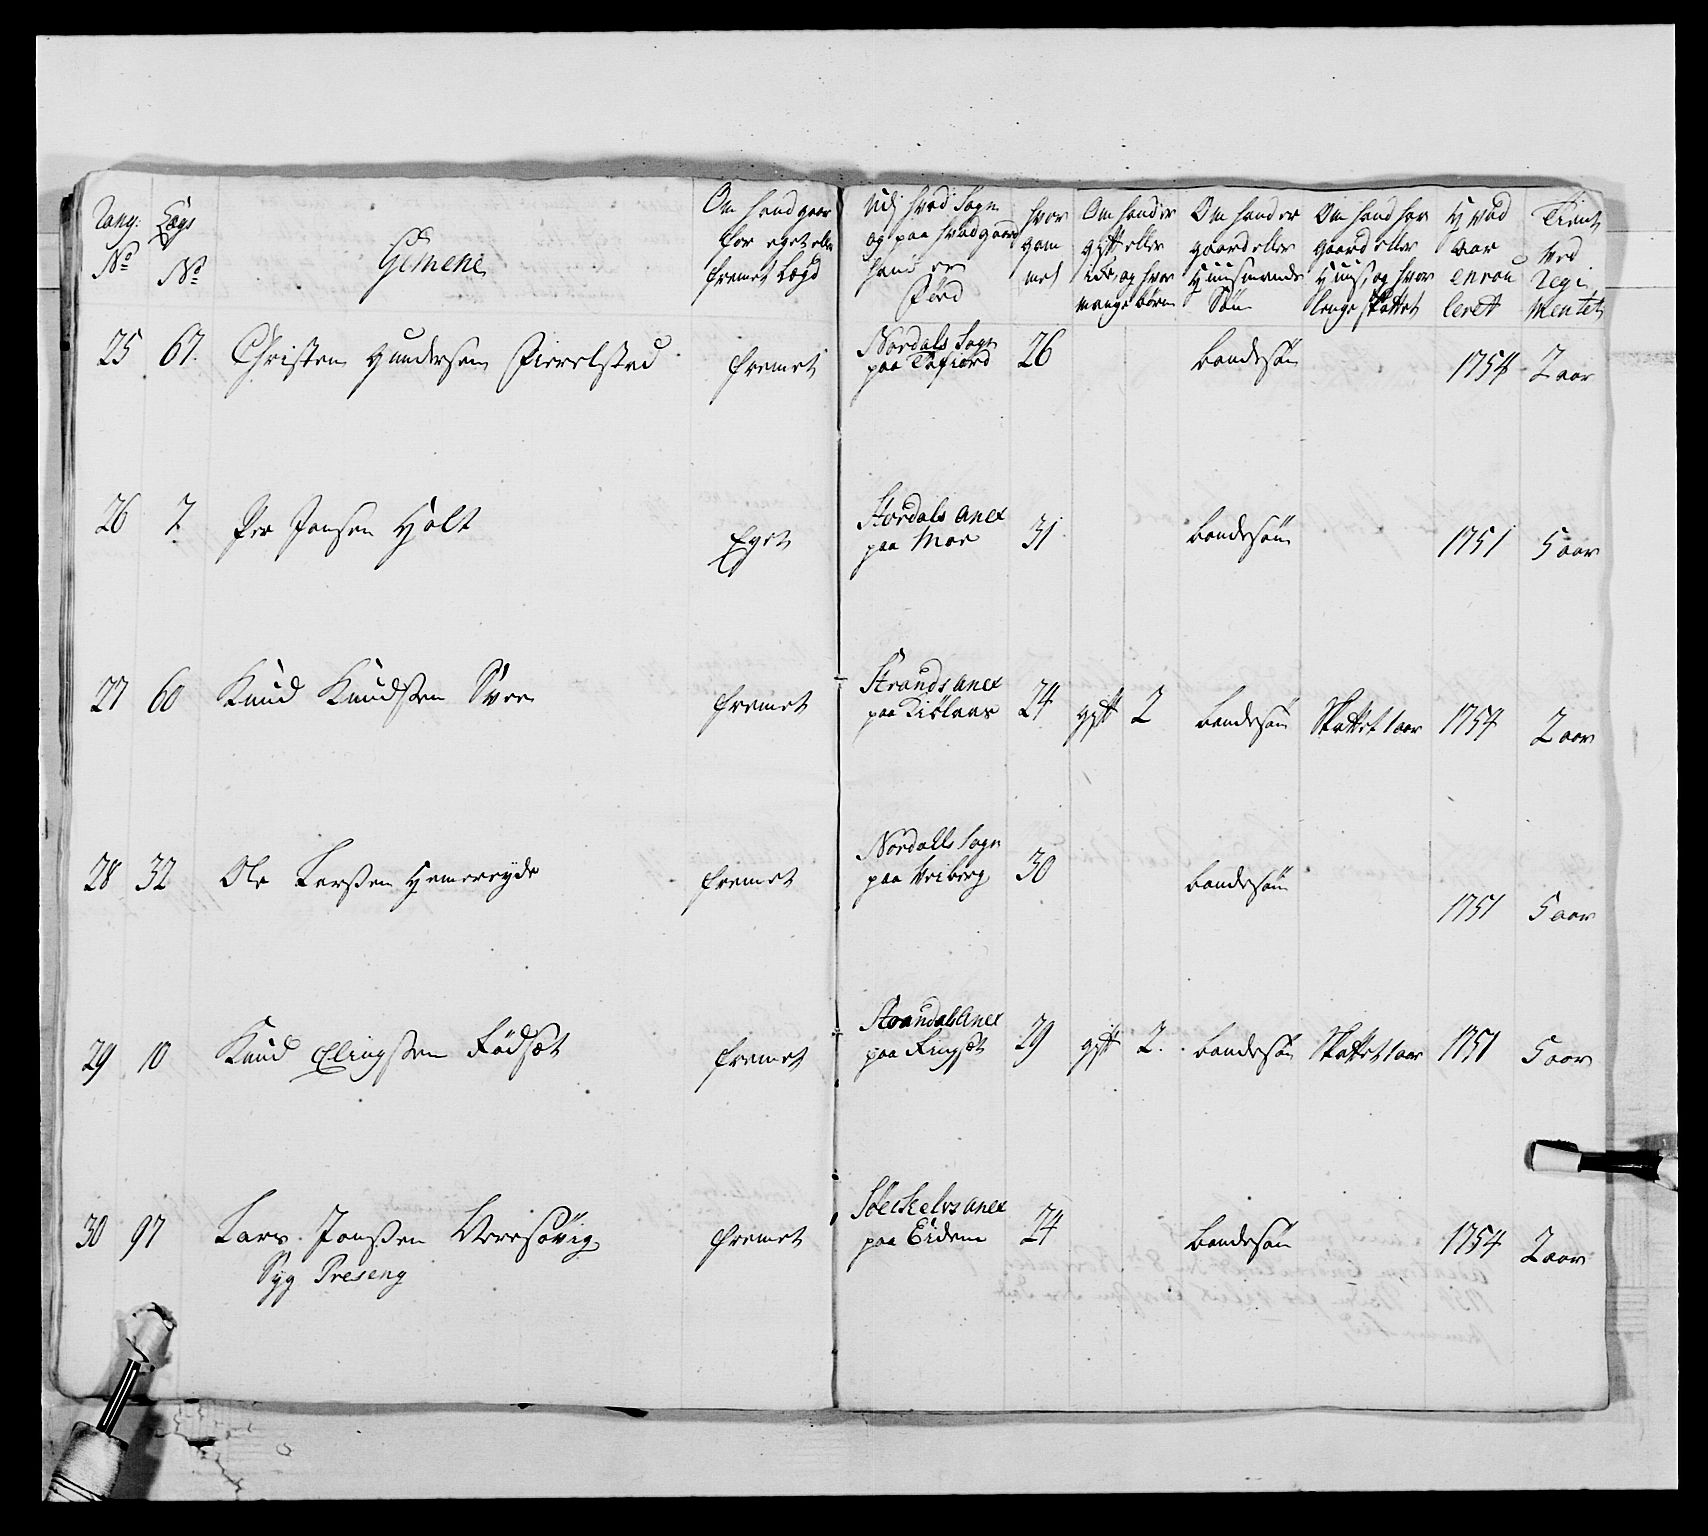 Rang: Lægs
No No
Gemene
Om hand gaar
for eget eller
fremet Lægd
Udj hvad Sogn
og paa hvad gaard
hand er
Fød
hvor
gam
mel
Om hand er
gift eller
ikke, og hvor
mange børn
Om hand er
gaard eller
Huusmands
Søn
Om hand har
gaard eller
Huus, og hvor
lenge skattet
Hvad
aar
enrou
leret
Tient
ved
Regi
mentet
25 67. Christen Gundersen fremet
Nordals Sogn
paa Tafiord
26 bondesøn 1754 2 aar
26 7. Per Jonsen Holt Eget
Stordals Anex
paa Moe
31 bondesøn 1751 5 aar
27 60 Knud Knudsen fremet
Strands Anex
paa
24 gift 2 bondesøn Skattet 1 aar 1754 2 aar
28 32 Ole Larsen fremet
Nordalls Sogn
paa Heiberg
30 bondesøn 1751 5 aar
29 10 Knud Elingsen Rødset fremet
Strandals Anex
paa Ringset
29 gift 2. bondesøn Skattet 1 aar 1751 5 aar
30 97 Lars Jonsen fremet
Syg Preseng
Anex
paa Eidem
24 bondesøn 1754 2 aar